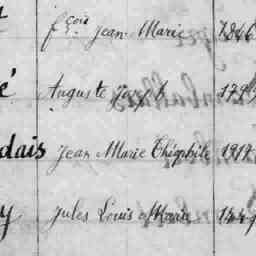 fçois Jean Marie 1846
é Auguste Joseph 179
dais Jean Marie Théophile 1917
y Jules Louis Marie 1449